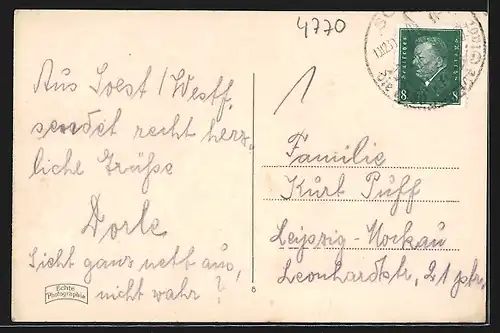 4770
Aus Soest / Westf.
sendet recht herz-
liche Grüsse
Dorle
Sieht ganz nett aus,
nicht wahr?
Echte
Photographie
8
8
Familie
Kurt Puff
Leipzig-Mockau
Leonhardtstr, 21 ptr.
6